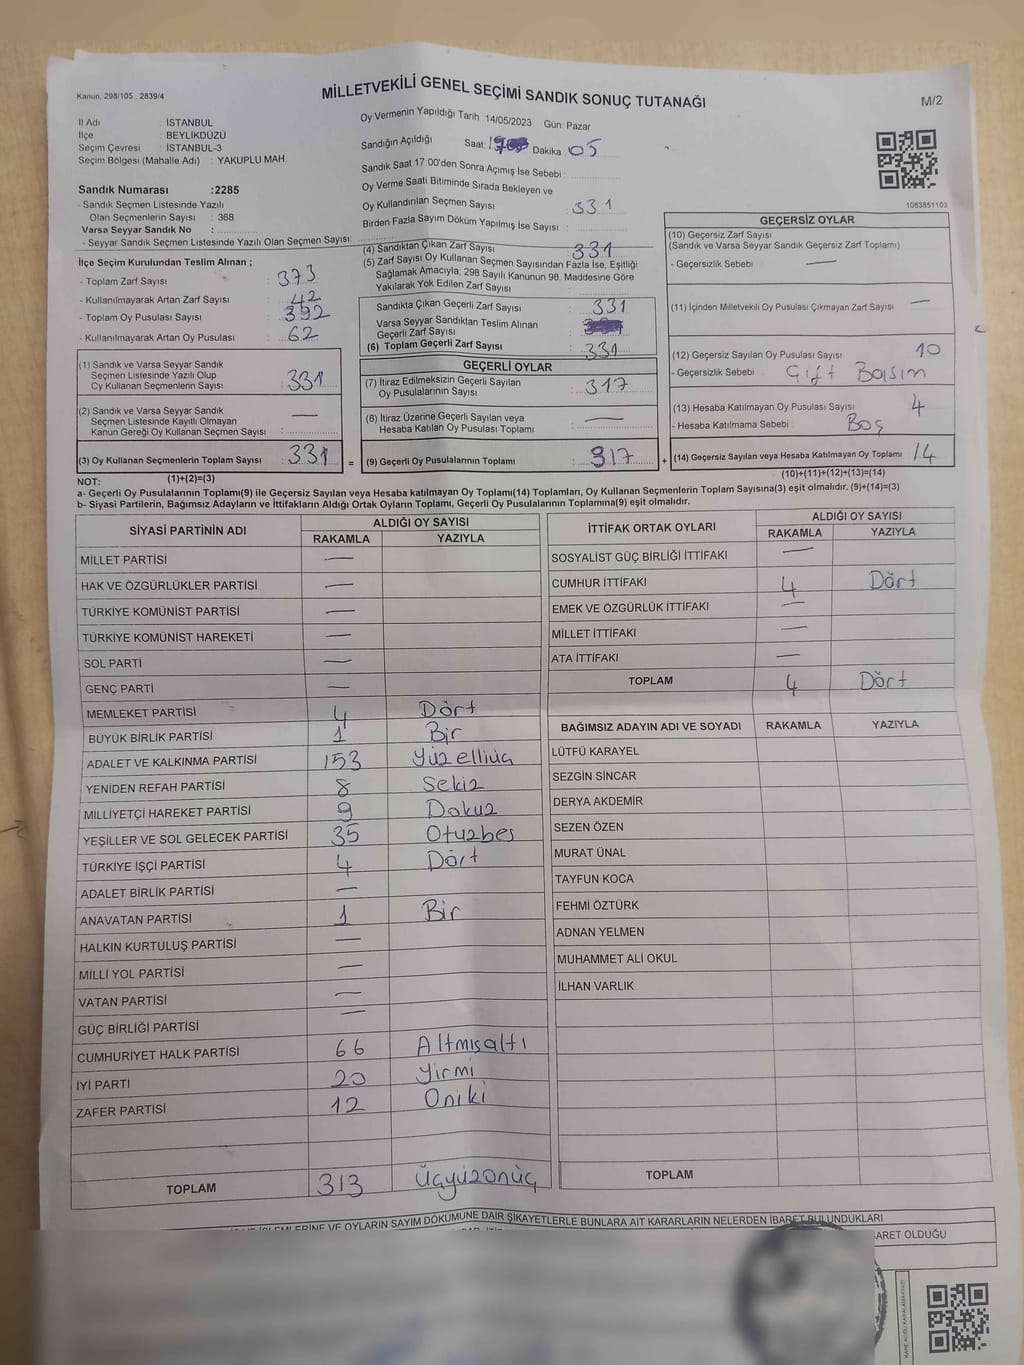 Kanun, 298/105 , 2839/4
MİLLETVEKİLİ GENEL SEÇİMİ SANDIK SONUÇ TUTANAĞI
M/2
İl Adı : İSTANBUL
İlçe : BEYLİKDÜZÜ
Seçim Çevresi : İSTANBUL-3
Seçim Bölgesi (Mahalle Adı) : YAKUPLU MAH.
Sandık Numarası :2285
- Sandık Seçmen Listesinde Yazılı
Olan Seçmenlerin Sayısı : 368
Varsa Seyyar Sandık No :
- Seyyar Sandık Seçmen Listesinde Yazılı Olan Seçmen Sayısı:
İlçe Seçim Kurulundan Teslim Alınan ;
- Toplam Zarf Sayısı : 373
- Kullanılmayarak Artan Zarf Sayısı : 42
- Toplam Oy Pusulası Sayısı : 392
- Kullanılmayarak Artan Oy Pusulası : 62
(1) Sandık ve Varsa Seyyar Sandık
Seçmen Listesinde Yazılı Olup
Oy Kullanan Seçmenlerin Sayısı : 331
(2) Sandık ve Varsa Seyyar Sandık
Seçmen Listesinde Kayıtlı Olmayan
Kanun Gereği Oy Kullanan Seçmen Sayısı : —
(3) Oy Kullanan Seçmenlerin Toplam Sayısı : 331
(1)+(2)=(3)
Oy Vermenin Yapıldığı Tarih :14/05/2023 Gün: Pazar
Sandığın Açıldığı Saat: Dakika : 05
Sandık Saat 17:00'den Sonra Açımış İse Sebebi :
Oy Verme Saati Bitiminde Sırada Bekleyen ve
Oy Kullandırılan Seçmen Sayısı : 331
Birden Fazla Sayım Döküm Yapılmış İse Sayısı :
(4) Sandıktan Çıkan Zarf Sayısı : 331
(5) Zarf Sayısı Oy Kullanan Seçmen Sayısından Fazla İse, Eşitliği
Sağlamak Amacıyla, 298 Sayılı Kanunun 98. Maddesine Göre
Yakılarak Yok Edilen Zarf Sayısı :
Sandıkta Çıkan Geçerli Zarf Sayısı : 331
Varsa Seyyar Sandıktan Teslim Alınan
Geçerli Zarf Sayısı :
(6) Toplam Geçerli Zarf Sayısı : 331
GEÇERLİ OYLAR
(7) İtiraz Edilmeksizin Geçerli Sayılan
Oy Pusulalarının Sayısı : 317
(8) İtiraz Üzerine Geçerli Sayılan veya
Hesaba Katılan Oy Pusulası Toplamı : —
= (9) Geçerli Oy Pusulalarının Toplamı : 317 +
1083851103
GEÇERSİZ OYLAR
(10) Geçersiz Zarf Sayısı
(Sandık ve Varsa Seyyar Sandık Geçersiz Zarf Toplamı)
- Geçersizlik Sebebi : —
(11) İçinden Milletvekili Oy Pusulası Çıkmayan Zarf Sayısı : —
(12) Geçersiz Sayılan Oy Pusulası Sayısı : 10
- Geçersizlik Sebebi : Çift Basım
(13) Hesaba Katılmayan Oy Pusulası Sayısı : 4
- Hesaba Katılmama Sebebi : Boş
(14) Geçersiz Sayılan veya Hesaba Katılmayan Oy Toplamı : 14
(10)+(11)+(12)+(13)=(14)
NOT:
a- Geçerli Oy Pusulalarının Toplamı(9) ile Geçersiz Sayılan veya Hesaba katılmayan Oy Toplamı(14) Toplamları, Oy Kullanan Seçmenlerin Toplam Sayısına(3) eşit olmalıdır. (9)+(14)=(3)
b- Siyasi Partilerin, Bağımsız Adayların ve İttifakların Aldığı Ortak Oyların Toplamı, Geçerli Oy Pusulalarının Toplamına(9) eşit olmalıdır.
SİYASİ PARTİNİN ADI ALDIĞI OY SAYISI
RAKAMLA YAZIYLA
MİLLET PARTİSİ —
HAK VE ÖZGÜRLÜKLER PARTİSİ —
TÜRKİYE KOMÜNİST PARTİSİ —
TÜRKİYE KOMÜNİST HAREKETİ —
SOL PARTİ —
GENÇ PARTİ —
MEMLEKET PARTİSİ 4 Dört
BÜYÜK BİRLİK PARTİSİ 1 Bir
ADALET VE KALKINMA PARTİSİ 153 Yüzelliüç
YENİDEN REFAH PARTİSİ 8 Sekiz
MİLLİYETÇİ HAREKET PARTİSİ 9 Dokuz
YEŞİLLER VE SOL GELECEK PARTİSİ 35 Otuzbeş
TÜRKİYE İŞÇİ PARTİSİ 4 Dört
ADALET BİRLİK PARTİSİ —
ANAVATAN PARTİSİ 1 Bir
HALKIN KURTULUŞ PARTİSİ —
MİLLİ YOL PARTİSİ —
VATAN PARTİSİ —
GÜÇ BİRLİĞİ PARTİSİ —
CUMHURİYET HALK PARTİSİ 66 Altmışaltı
İYİ PARTİ 20 Yirmi
ZAFER PARTİSİ 12 Oniki
TOPLAM 313 Üçyüzonüç
İTTİFAK ORTAK OYLARI ALDIĞI OY SAYISI
RAKAMLA YAZIYLA
SOSYALİST GÜÇ BİRLİĞİ İTTİFAKI —
CUMHUR İTTİFAKI 4 Dört
EMEK VE ÖZGÜRLÜK İTTİFAKI —
MİLLET İTTİFAKI —
ATA İTTİFAKI —
TOPLAM 4 Dört
BAĞIMSIZ ADAYIN ADI VE SOYADI RAKAMLA YAZIYLA
LÜTFÜ KARAYEL
SEZGİN SİNCAR
DERYA AKDEMİR
SEZEN ÖZEN
MURAT ÜNAL
TAYFUN KOCA
FEHMİ ÖZTÜRK
ADNAN YELMEN
MUHAMMET ALİ OKUL
İLHAN VARLIK
TOPLAM
İŞLEMLERİNE VE OYLARIN SAYIM DÖKÜMÜNE DAİR ŞİKAYETLERLE BUNLARA AİT KARARLARIN NELERDEN İBARET BULUNDUKLARI
OLDUĞU